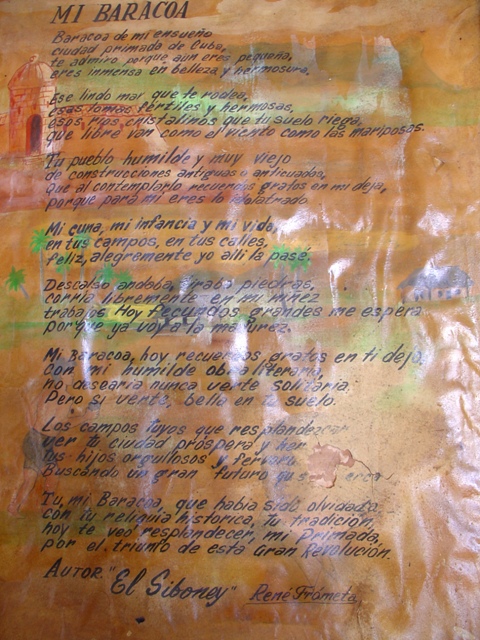 MI BARACOA
Baracoa de mi ensueño
ciudad primada de Cuba,
te admiro porque aun eres pequeña,
eres inmensa en belleza y hermosura,
Ese lindo mar que te rodea,
esas lomas fértiles y hermosas,
esos ríos cristalinos que tu suelo riega,
que libre van como el viento como las mariposas.
Tu pueblo humilde y muy viejo
de construcciones antiguas o anticuadas,
que al contemplarlo recuerdos gratos en mi deja,
porque para mi eres lo idolatrado
Mi cuna, mi infancia y mi vida,
en tus campos, en tus calles,
feliz, alegremente yo alli la pasé.
Descalso andaba, tiraba piedras,
corria libremente en mi niñez
trabajos Hoy fecundos grandes me espera
porque ya voy a la madurez.
Mi Baracoa, hoy recuerdos, gratos en ti dejo,
con mi humilde obra literaria,
no desearia nunca verte solitaria
Pero si verte, bello en tu suelo.
Los campos tuyos que resplandezcan
ver tu ciudad próspera y her
tus hijos orgullosos y fervoro
Buscando un gran futuro qu
Tu, mi Baracoa, que habia sido olvidada
con tu reliquia historica, tu tradición,
hoy te veo resplandecer, mi Primada,
por el triunfo de esta Gran Revolución.
AUTOR. "El Siboney" René Frómeta